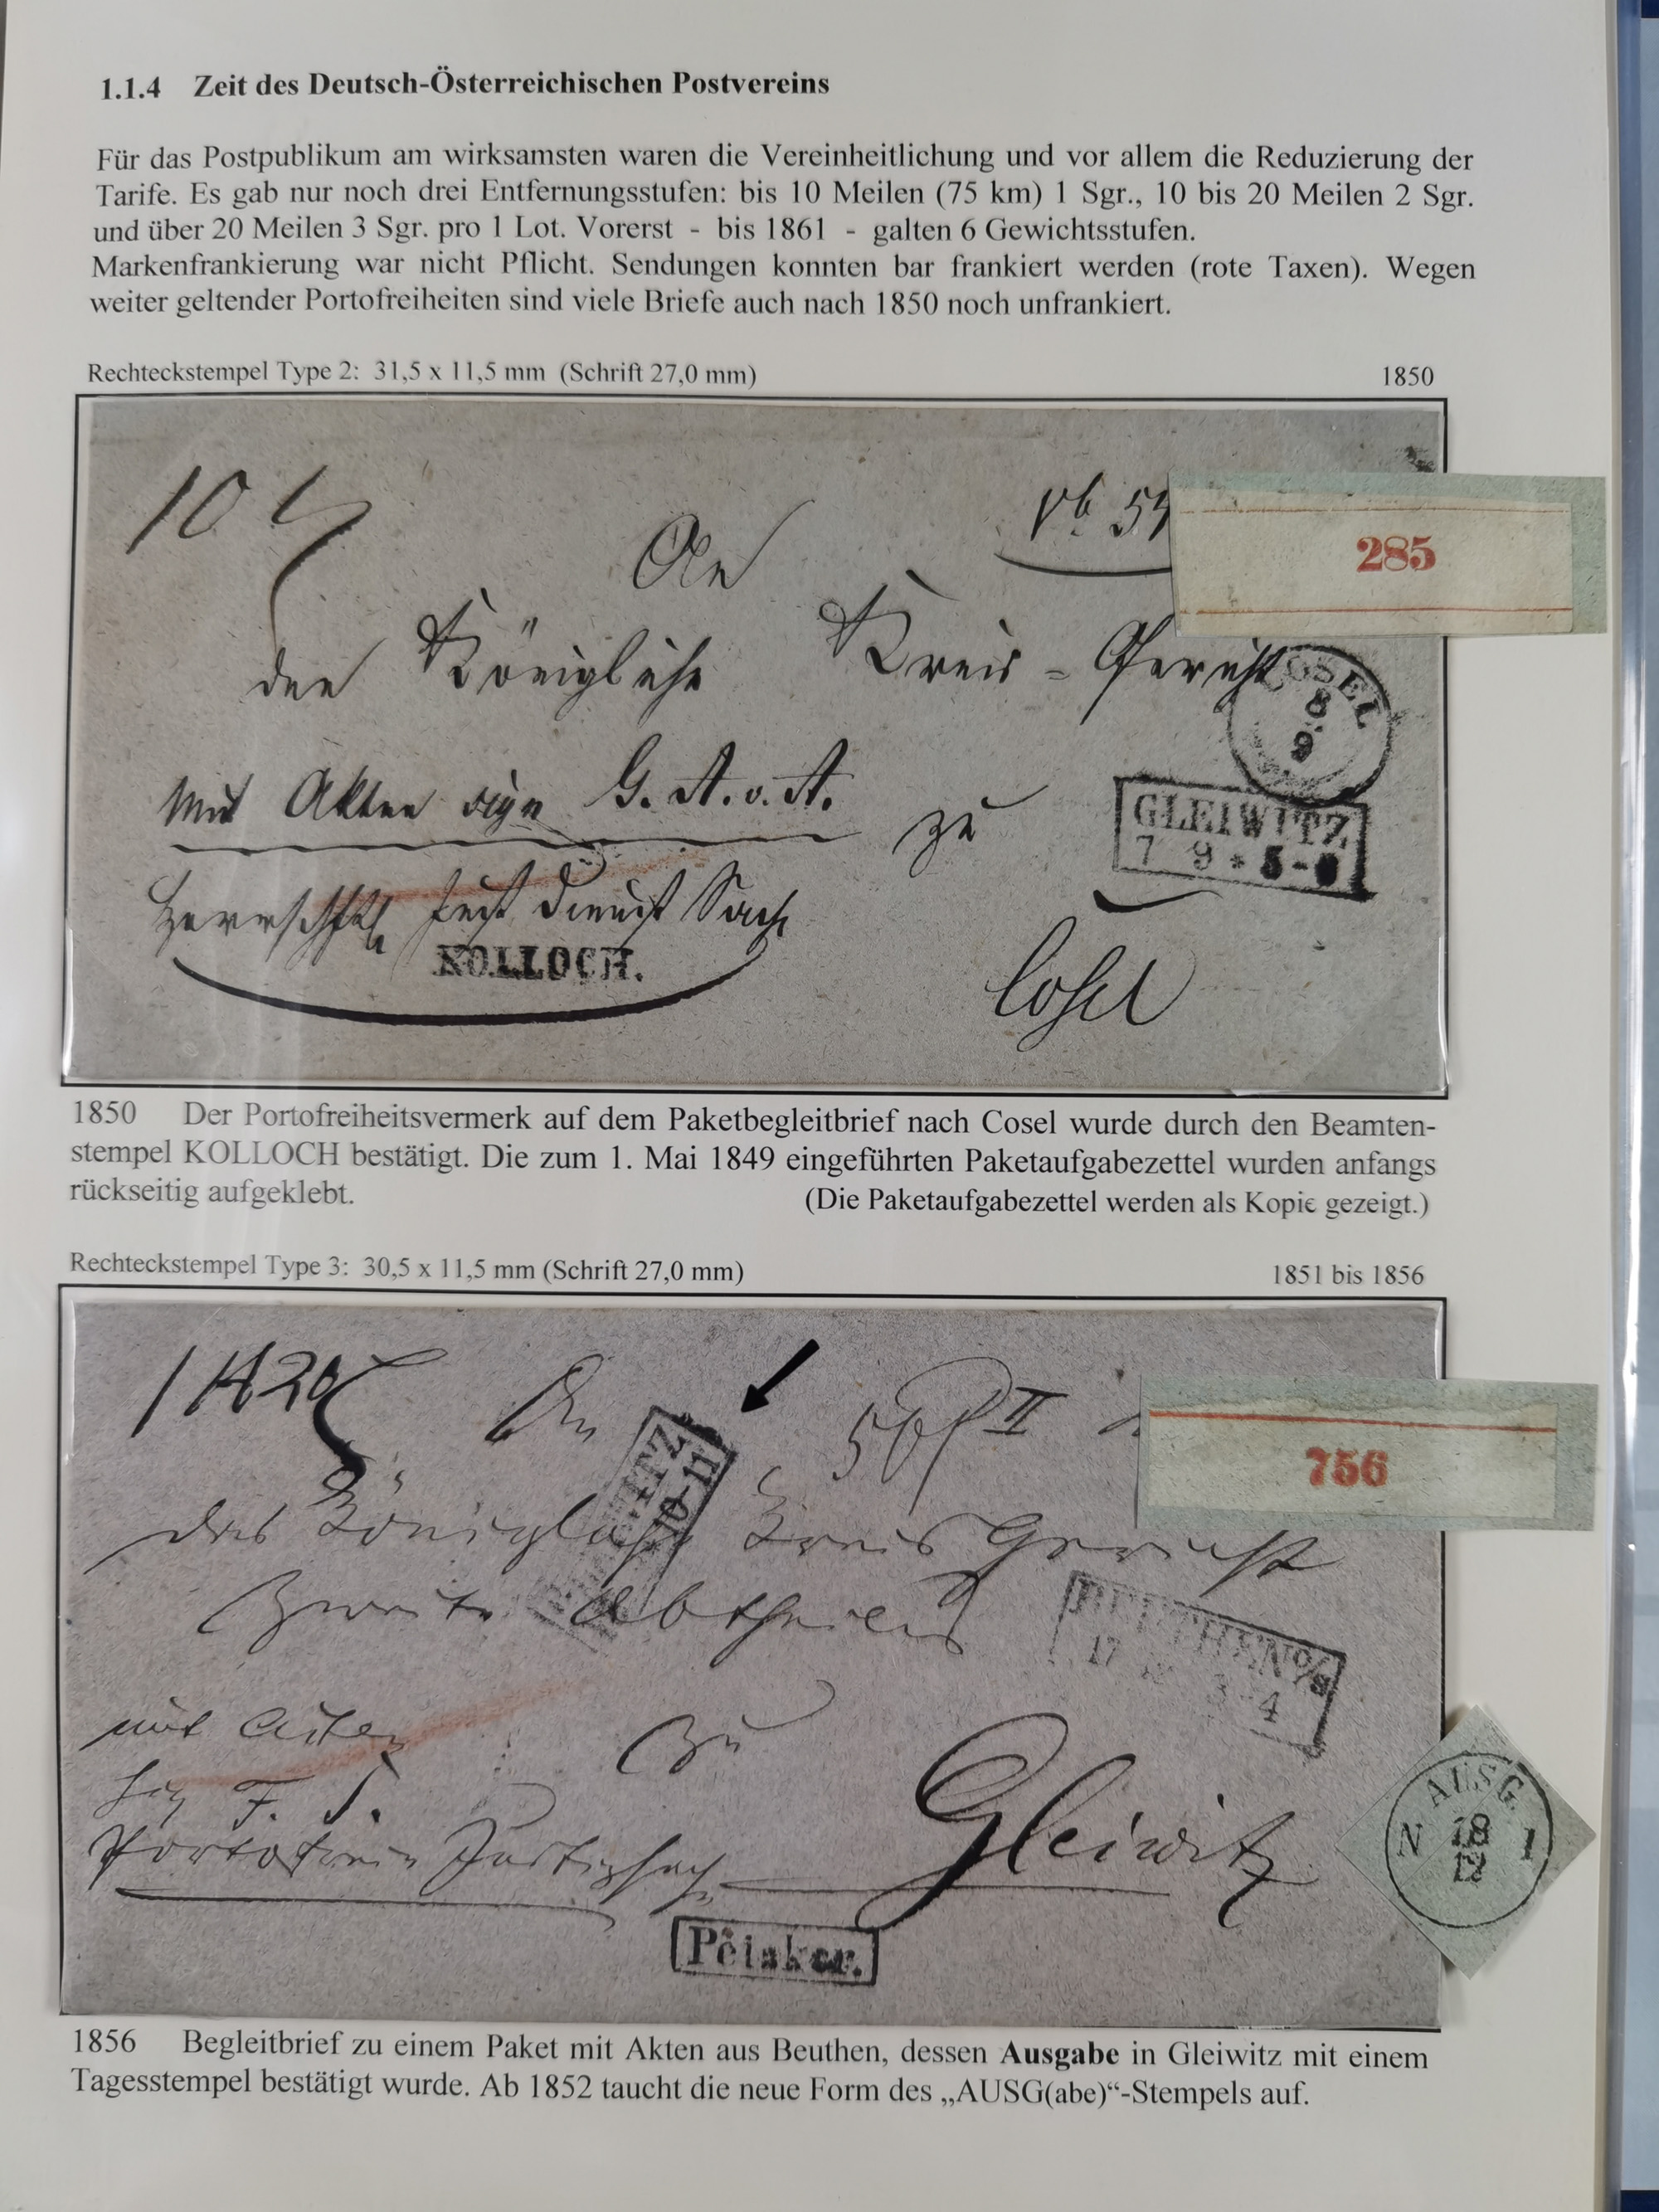 1.1.4 Zeit des Deutsch-Österreichischen Postvereins
Für das Postpublikum am wirksamsten waren die Vereinheitlichung und vor allem die Reduzierung der
Tarife. Es gab nur noch drei Entfernungsstufen: bis 10 Meilen (75 km) 1 Sgr., 10 bis 20 Meilen 2 Sgr.
und über 20 Meilen 3 Sgr. pro 1 Lot. Vorerst - bis 1861 - galten 6 Gewichtsstufen.
Markenfrankierung war nicht Pflicht. Sendungen konnten bar frankiert werden (rote Taxen). Wegen
weiter geltender Portofreiheiten sind viele Briefe auch nach 1850 noch unfrankiert.
Rechteckstempel Type 2: 31,5 x 11,5 mm (Schrift 27,0 mm) 1850
10
285
An
den Königliche Kreis-Gericht
COSEL
8
9
Mit Akten sign G. A. v. A.
zu
GLEIWITZ
7 9 * 5-
KOLLOCH.
Cosel
1850 Der Portofreiheitsvermerk auf dem Paketbegleitbrief nach Cosel wurde durch den Beamten-
stempel KOLLOCH bestätigt. Die zum 1. Mai 1849 eingeführten Paketaufgabezettel wurden anfangs
rückseitig aufgeklebt. (Die Paketaufgabezettel werden als Kopie gezeigt.)
Rechteckstempel Type 3: 30,5 x 11,5 mm (Schrift 27,0 mm) 1851 bis 1856
An
II
756
ITZ
10-11
das Königliche Kreis Gericht
Zweite Abtheilung
BEUTHEN O/S
17 3 4
mit Akten
zu
F. S.
Gleiwitz
Portofreie Justizsache
AUSG
N 18 1
12
Peisker.
1856 Begleitbrief zu einem Paket mit Akten aus Beuthen, dessen Ausgabe in Gleiwitz mit einem
Tagesstempel bestätigt wurde. Ab 1852 taucht die neue Form des „AUSG(abe)“-Stempels auf.